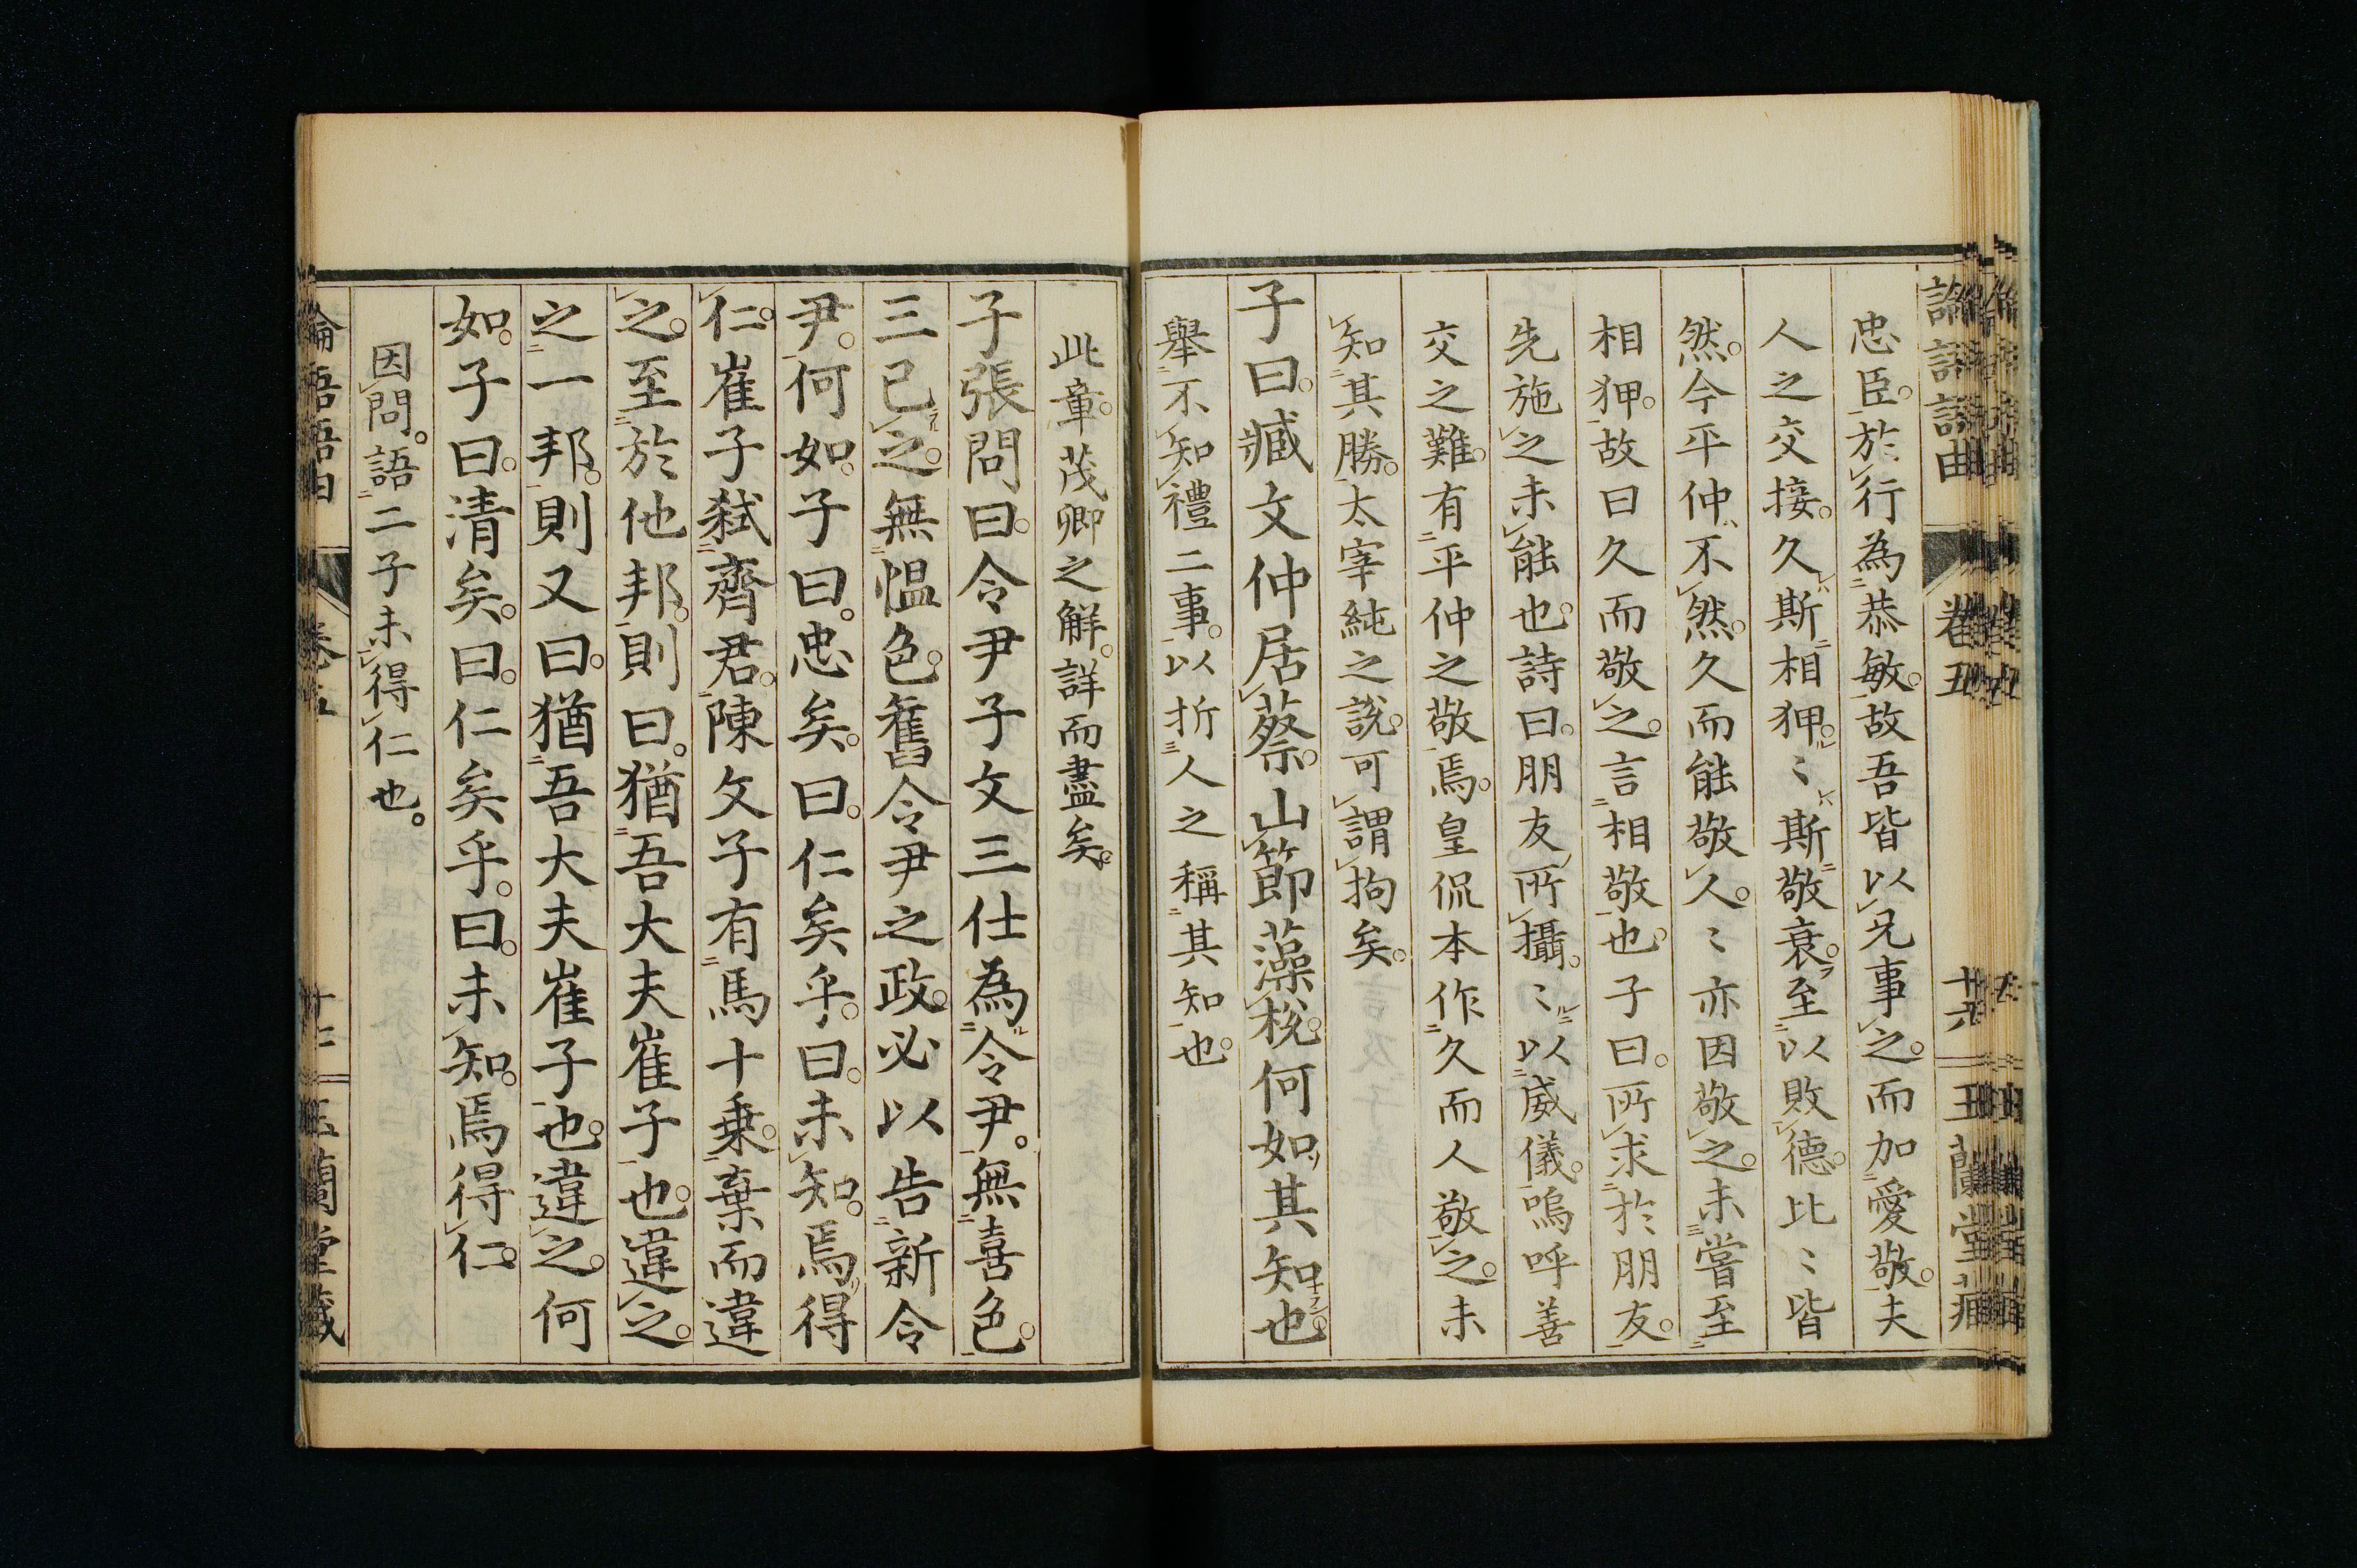 忠臣。於行為恭敏。故吾皆以兄事之。而加愛敬。夫
人之交接。久斯相狎。〻斯敬衰。至以敗德。比〻皆
然。今平仲不然。久而能敬人。〻亦因敬之。未嘗至
相狎。故曰久而敬之。言相敬也。子曰。所求於朋友。
先施之未能也。詩曰。朋友所攝。〻以威儀。嗚呼善
交之難。有平仲之敬焉。皇侃本作久而人敬之。未
知其勝。太宰純之說。可謂拘矣。
子曰。臧文仲居蔡。山節藻梲。何如其知也。
舉不知禮二事。以折人之稱其知也。
此章。茂卿之解。詳而盡矣。
子張問曰。令尹子文三仕為令尹。無喜色。
三已之。無慍色。舊令尹之政。必以告新令
尹。何如。子曰。忠矣。曰。仁矣乎。曰。未知。焉得
仁。崔子弒齊君。陳文子有馬十乗。棄而違
之。至於他邦。則曰。猶吾大夫崔子也。違之。
之一邦。則又曰。猶吾大夫崔子也。違之。何
如。子曰。清矣。曰。仁矣乎。曰。未知。焉得仁。
因問。語二子未得仁也。